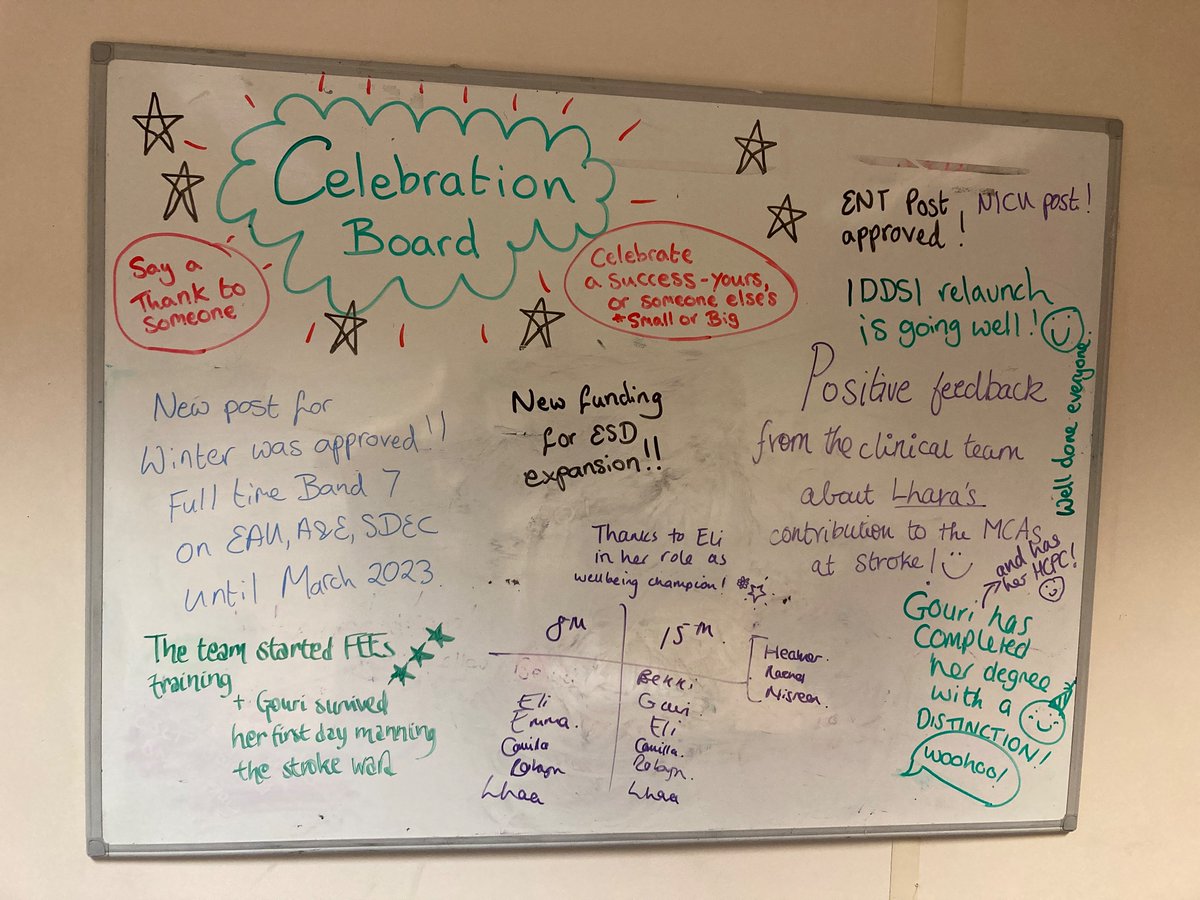 Celebration
Board
Say a
Thank to
Someone
Celebrate
a success - yours,
or someone else's
*Small or Big
ENT Post
approved!
NICU post!
IDDSI relaunch
is going well!
Well done everyone.
New post for
Winter was approved!!
Full time Band 7
on EAU, A&E, SDEC
until March 2023.
New funding
for ESD
expansion!!
Positive feedback
from the clinical team
about Lhara's
contribution to the MCAs
at stroke!
Thanks to Eli
in her role as
wellbeing champion!
The team started FEEs
training
+ Gouri survived
her first day manning
the stroke ward
8th
Eli
Emma.
Camilla
Robyn
15th
Bekki
Gouri
Eli
Camilla.
Robyn.
Heather.
Rachel
Nisreen.
and has
her HCPC!
Gouri has
completed
her degree
with a
DISTINCTION!
Woohoo!